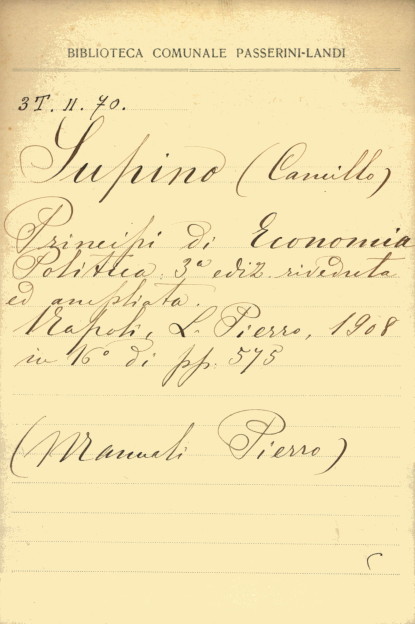 BIBLIOTECA COMUNALE PASSERINI-LANDI
3T. 11. 70.
Supino (Camillo)
Principi di Economia
Politica. 3ª ediz. riveduta
ed ampliata.
Napoli, L. Pierro, 1908
in 16° di pp. 575
(Manuali Pierro)